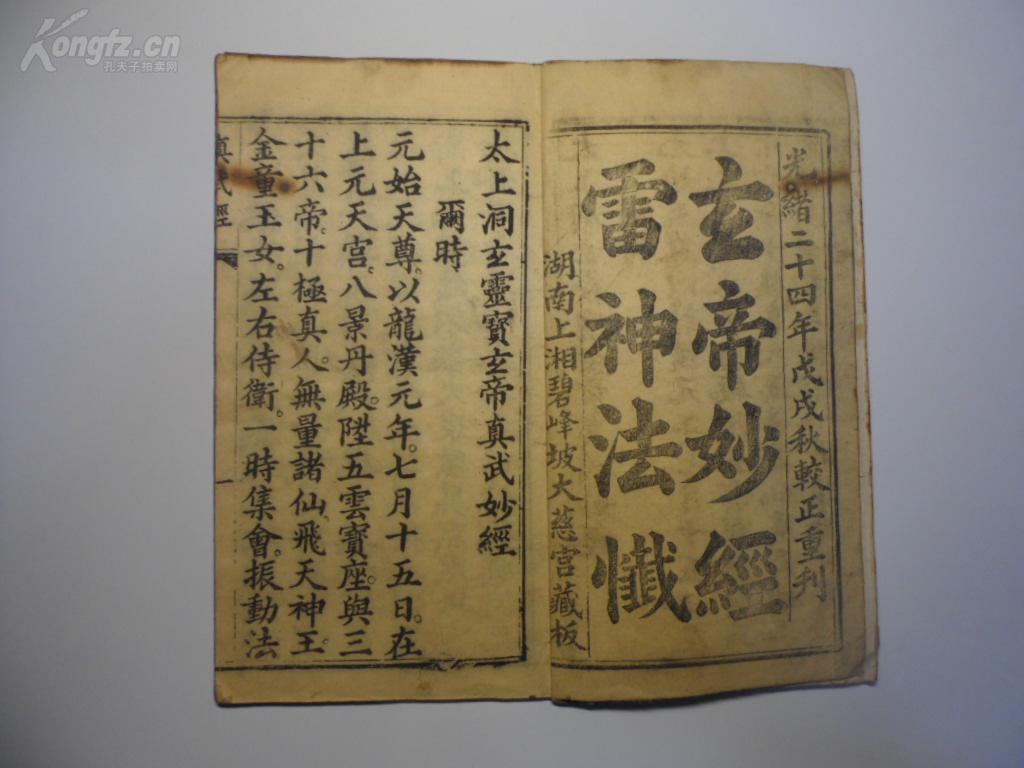 Kongfz.cn
孔夫子拍卖网
光緒二十四年戊戌秋較正重刋
玄帝妙經
雷神法懺
湖南上湘碧峰坡大慈宫藏板
太上洞玄靈寳玄帝真武妙經
爾時
元始天尊。以龍漢元年。七月十五日。在
上元天宫。八景丹殿。陞五雲寳座。與三
十六帝。十極真人。無量諸仙。飛天神王。
金童玉女。左右侍衛。一時集會。振動法
真武經
一